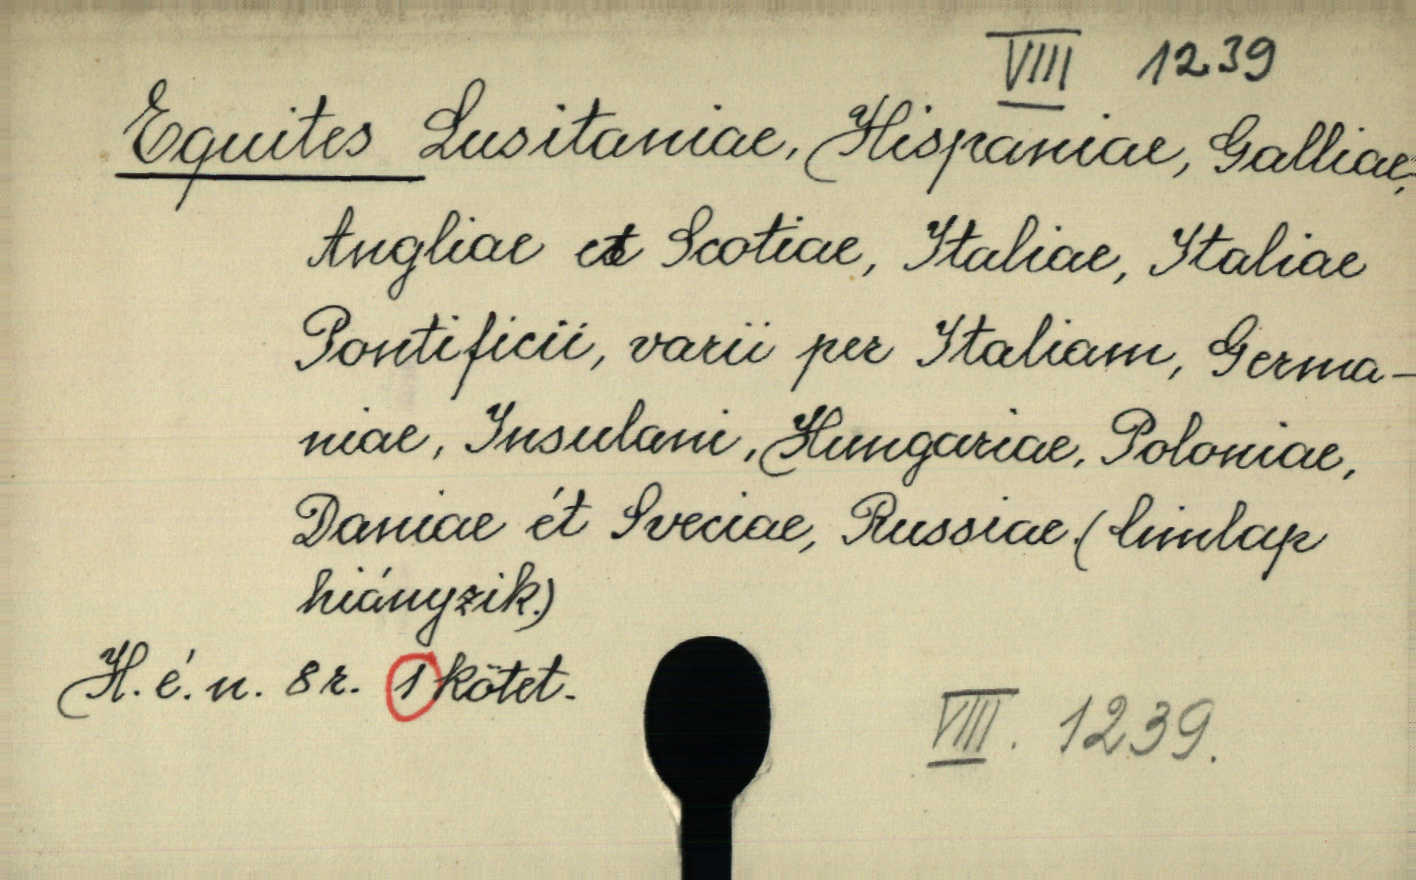 VIII 1239
Equites Lusitaniae, Hispaniae, Galliae,
Angliae et Scotiae, Italiae, Italiae
Pontificii, varii per Italiam, Germa-
niae, Insulani, Hungariae, Poloniae,
Daniae ét Sveciae, Russiae. (Cimlap
hiányzik.)
H. é. n. 8 r. 1 kötet.
VIII. 1239.